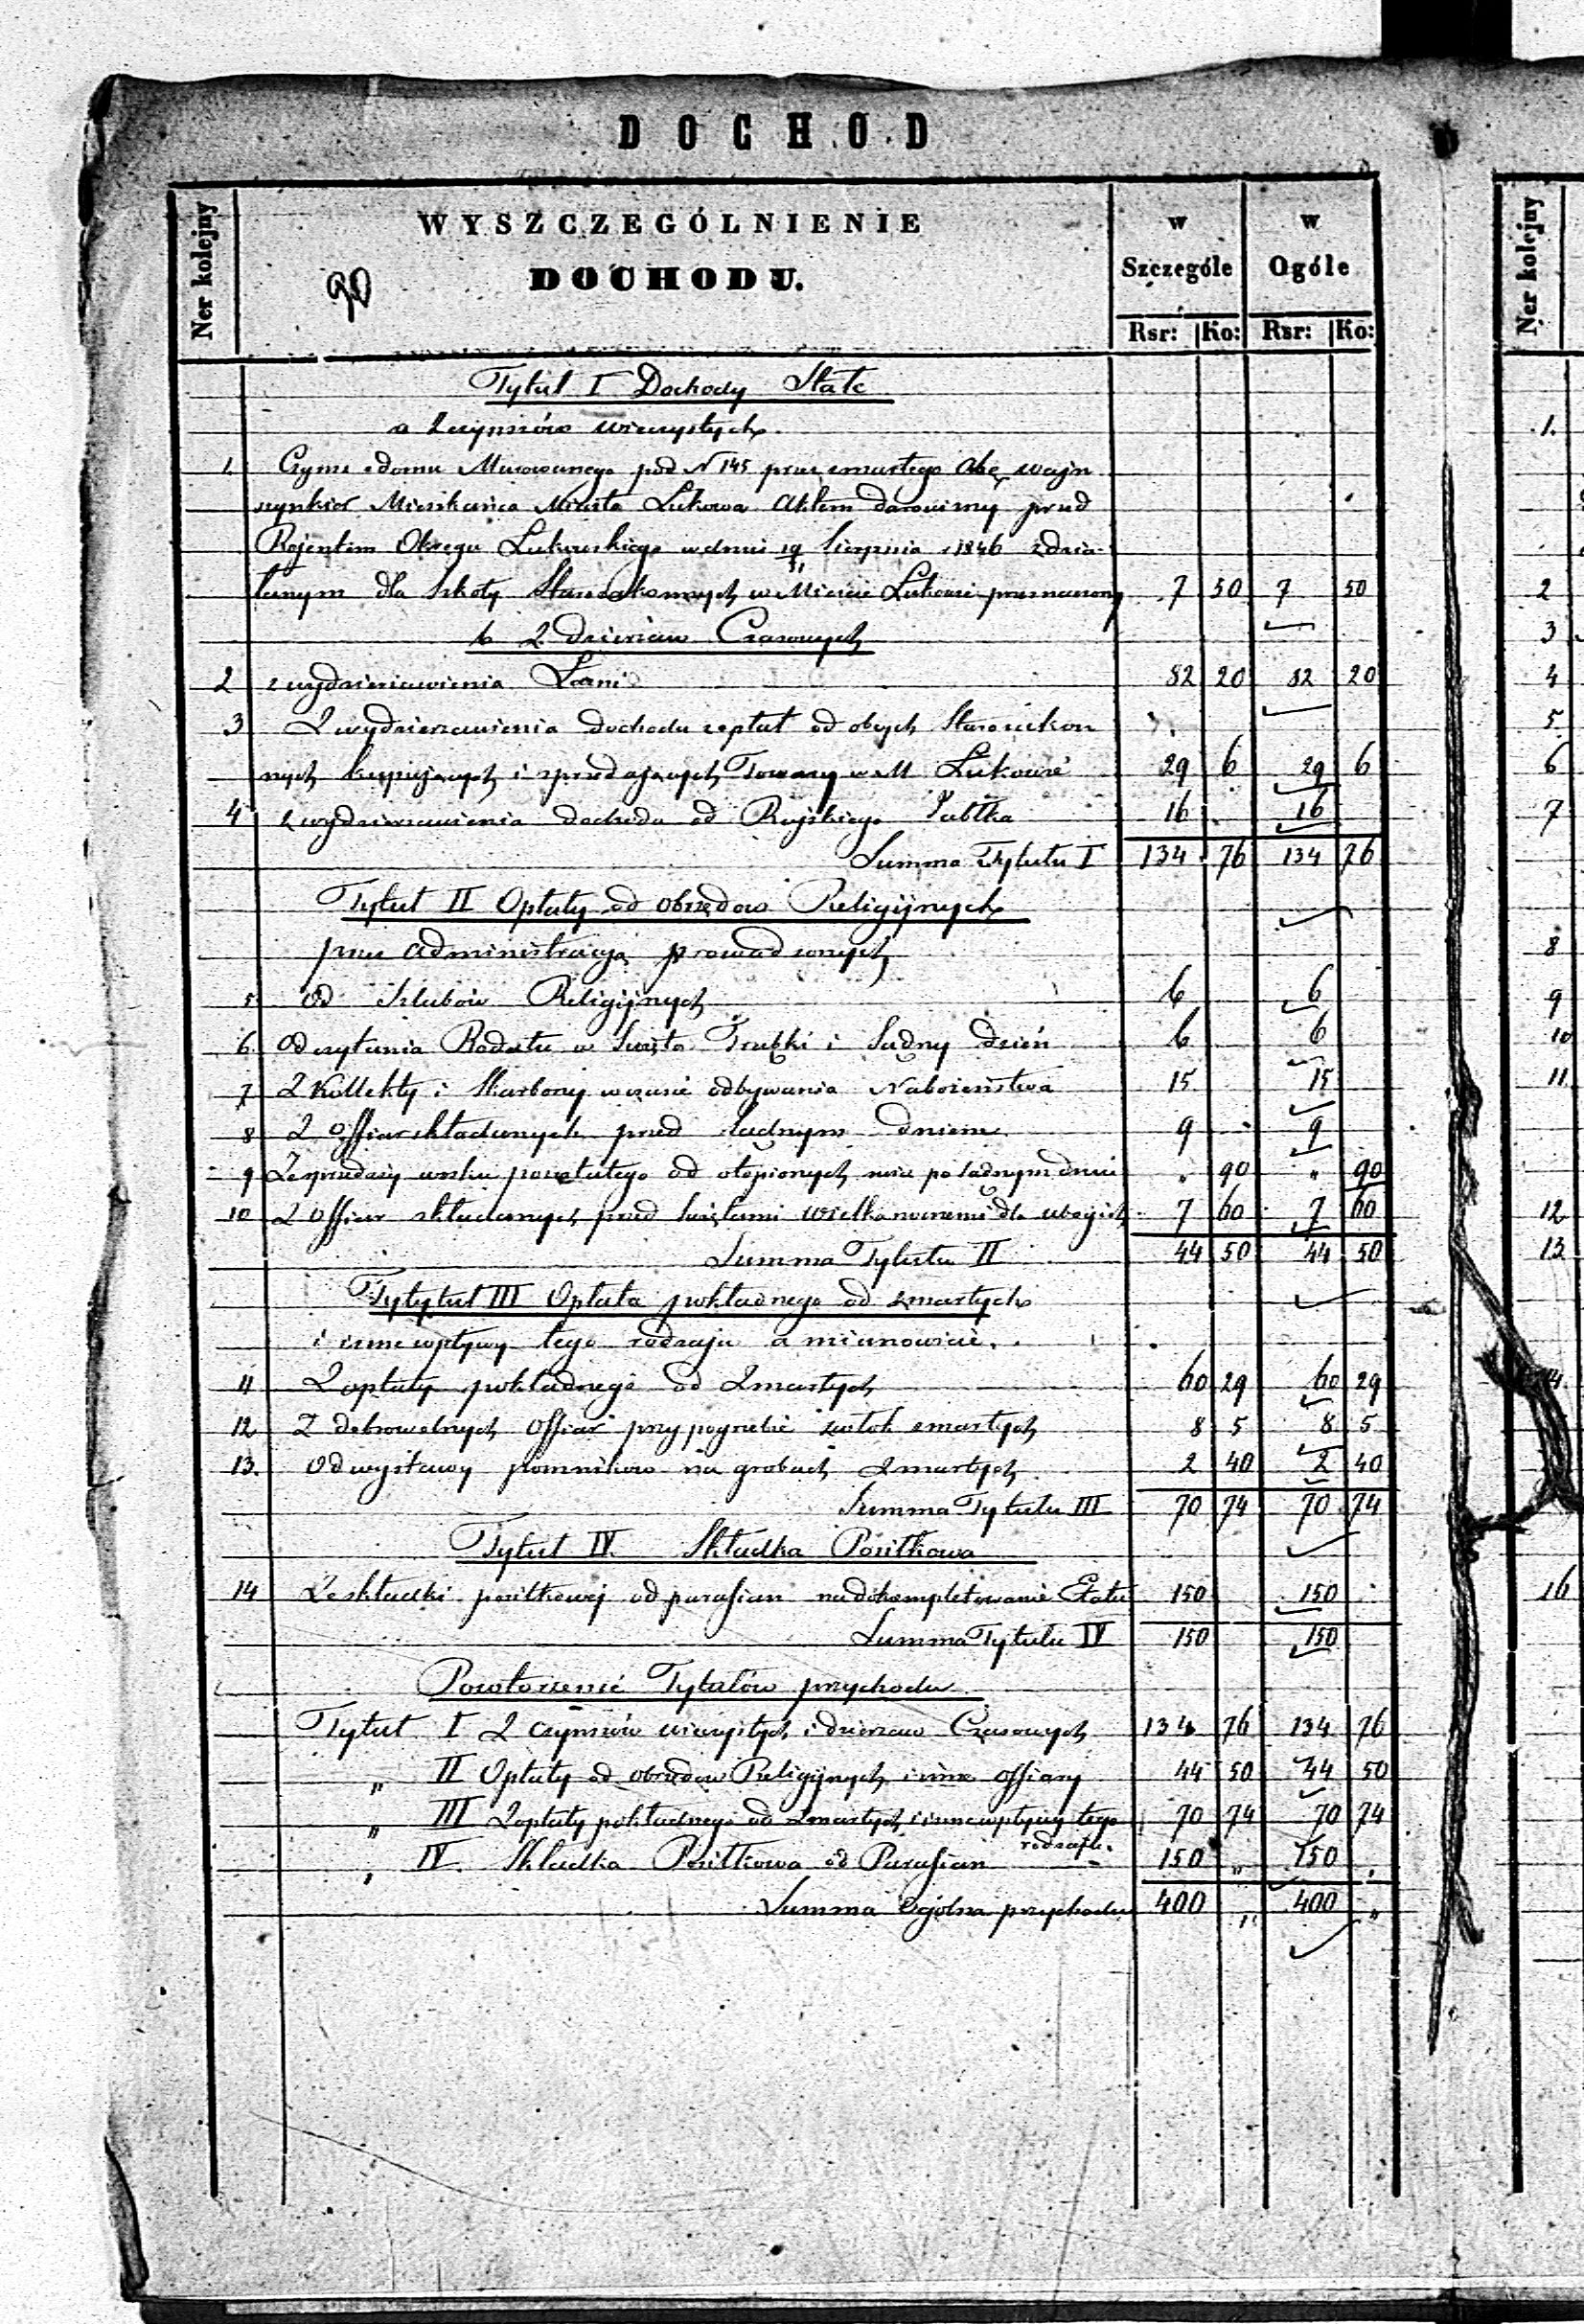 DOCHOD
Ner kolejny
WYSZCZEGÓLNIENIE
DOCHODU.
w Szczególe
w Ogóle
Rsr: Ko: Rsr: Ko:
Tytuł I Dochody Stałe
a Z czynszów wieczystych
1. Czynsz z domu Murowanego pod N 145 przez zmarłego Abę Wajn
szynkier Mieszkańca Miasta Łukowa Aktem darowizny przed
Rejentem Okręgu Łukowskiego w dniu 19 Sierpnia 1846 zdzia-
łanym dla Szkoły Starozakonnych w Mieście Łukowie przeznaczony 7 50 7 50
b Z dzierżaw Czasowych
2 z wydzierżawienia Łaźni 82 20 82 20
3 Z wydzierżawienia dochodu z opłat od obcych Starozakon
nych kupujących i sprzedających Towary w M Łukowie 29 6 29 6
4 z wydzierżawienia dochodu od Rajskiego Jabłka 16 16
Summa Tytułu I 134 76 134 76
Tytuł II Opłaty od obrzędów Religijnych
przez Administracyą prowadzonych
5 Od Szlubów Religijnych 6 6
6 Od czytania Rodału w Święto Trąbki i Sądny dzień 6 6
7 Z Kollekty i Skarbony w czasie odbywania Nabożeństwa 15 15
8 Z Offiar składanych przed Sądnym dniem 9 9
9 Ze sprzedaży wosku pozostałego od stopionych świc po Sądnym dniu " 90 " 90
10 Z Offiar składanych przed Świętami Wielkanocnemi dla ubogich 7 60 7 60
Summa Tytułu II 44 50 44 50
Tytytuł III Opłata pokładnego od zmarłych
i inne wpływy tego rodzaju a mianowicie.
11 Z opłaty pokładnego od Zmarłych 60 29 60 29
12 Z dobrowolnych Offiar przy pogrzebie zwłok zmarłych 8 5 8 5
13. Od wystawy pomników na grobach Zmarłych 2 40 2 40
Summa Tytułu III 70 74 70 74
Tytuł IV. Składka Posiłkowa
14 Ze składki posiłkowej od parafian na dokompletowanie Etatu 150 150
Summa Tytułu IV 150 150
Powtórzenie Tytułów przychodu
Tytuł I Z czynszów wieczystych i dzierżaw Czasowych 134 76 134 76
" II Opłaty od obrzędów Religijnych i inne offiary 44 50 44 50
" III Z opłaty pokładnego od Zmarłych i inne wpływy tego rodzaju. 70 74 70 74
" IV. Składka Posiłkowa od Parafian 150 " 150 "
Summa Ogólna przychodu 400 " 400 "
Ner kolejny
1.
2
3
4
5
6
7
8
9
10
11
12
13
16